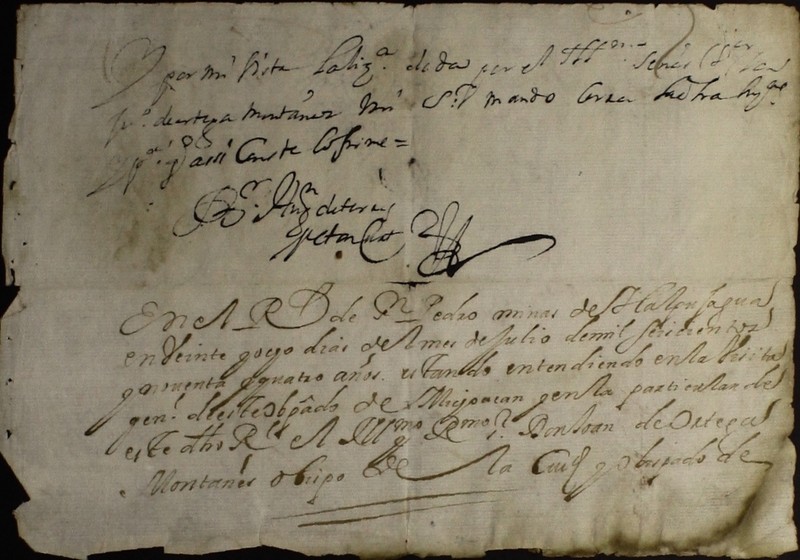 por mi Vista la liz.ª dada por el Ill.mo Señor D.r Juan
de ortega montañes mi S.r mando
p.ª q̃ assi Conste lo firme =
B.r Ju.n de
En el R.l de S.n Pedro minas de
en Veinte y ocho dias del mes de Julio de mil seisientos
y noventa y quatro años. estando entendiendo en la Visita
gen.l de este Obpãdo de Michoacan y en la particular de
este dho R.l el Ill.mo y R.mo S.r Don Joan de Ortega
Montañes obispo de la Ciud y obispado de